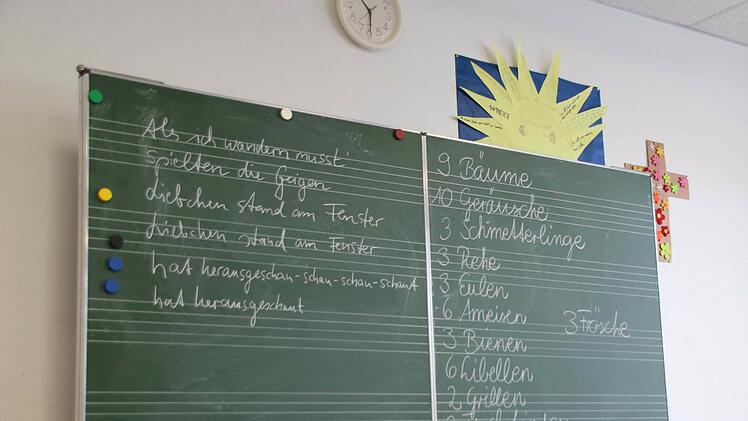 Als ich wandern musst'
spielten die Geigen
Liebchen stand am Fenster
Liebchen stand am Fenster
hat herausgeschau-schau-schau-schaut
hat herausgeschaut
9 Bäume
10 Geräusche
3 Schmetterlinge
3 Rehe
3 Eulen
6 Ameisen
3 Frösche
3 Bienen
6 Libellen
2 Grillen